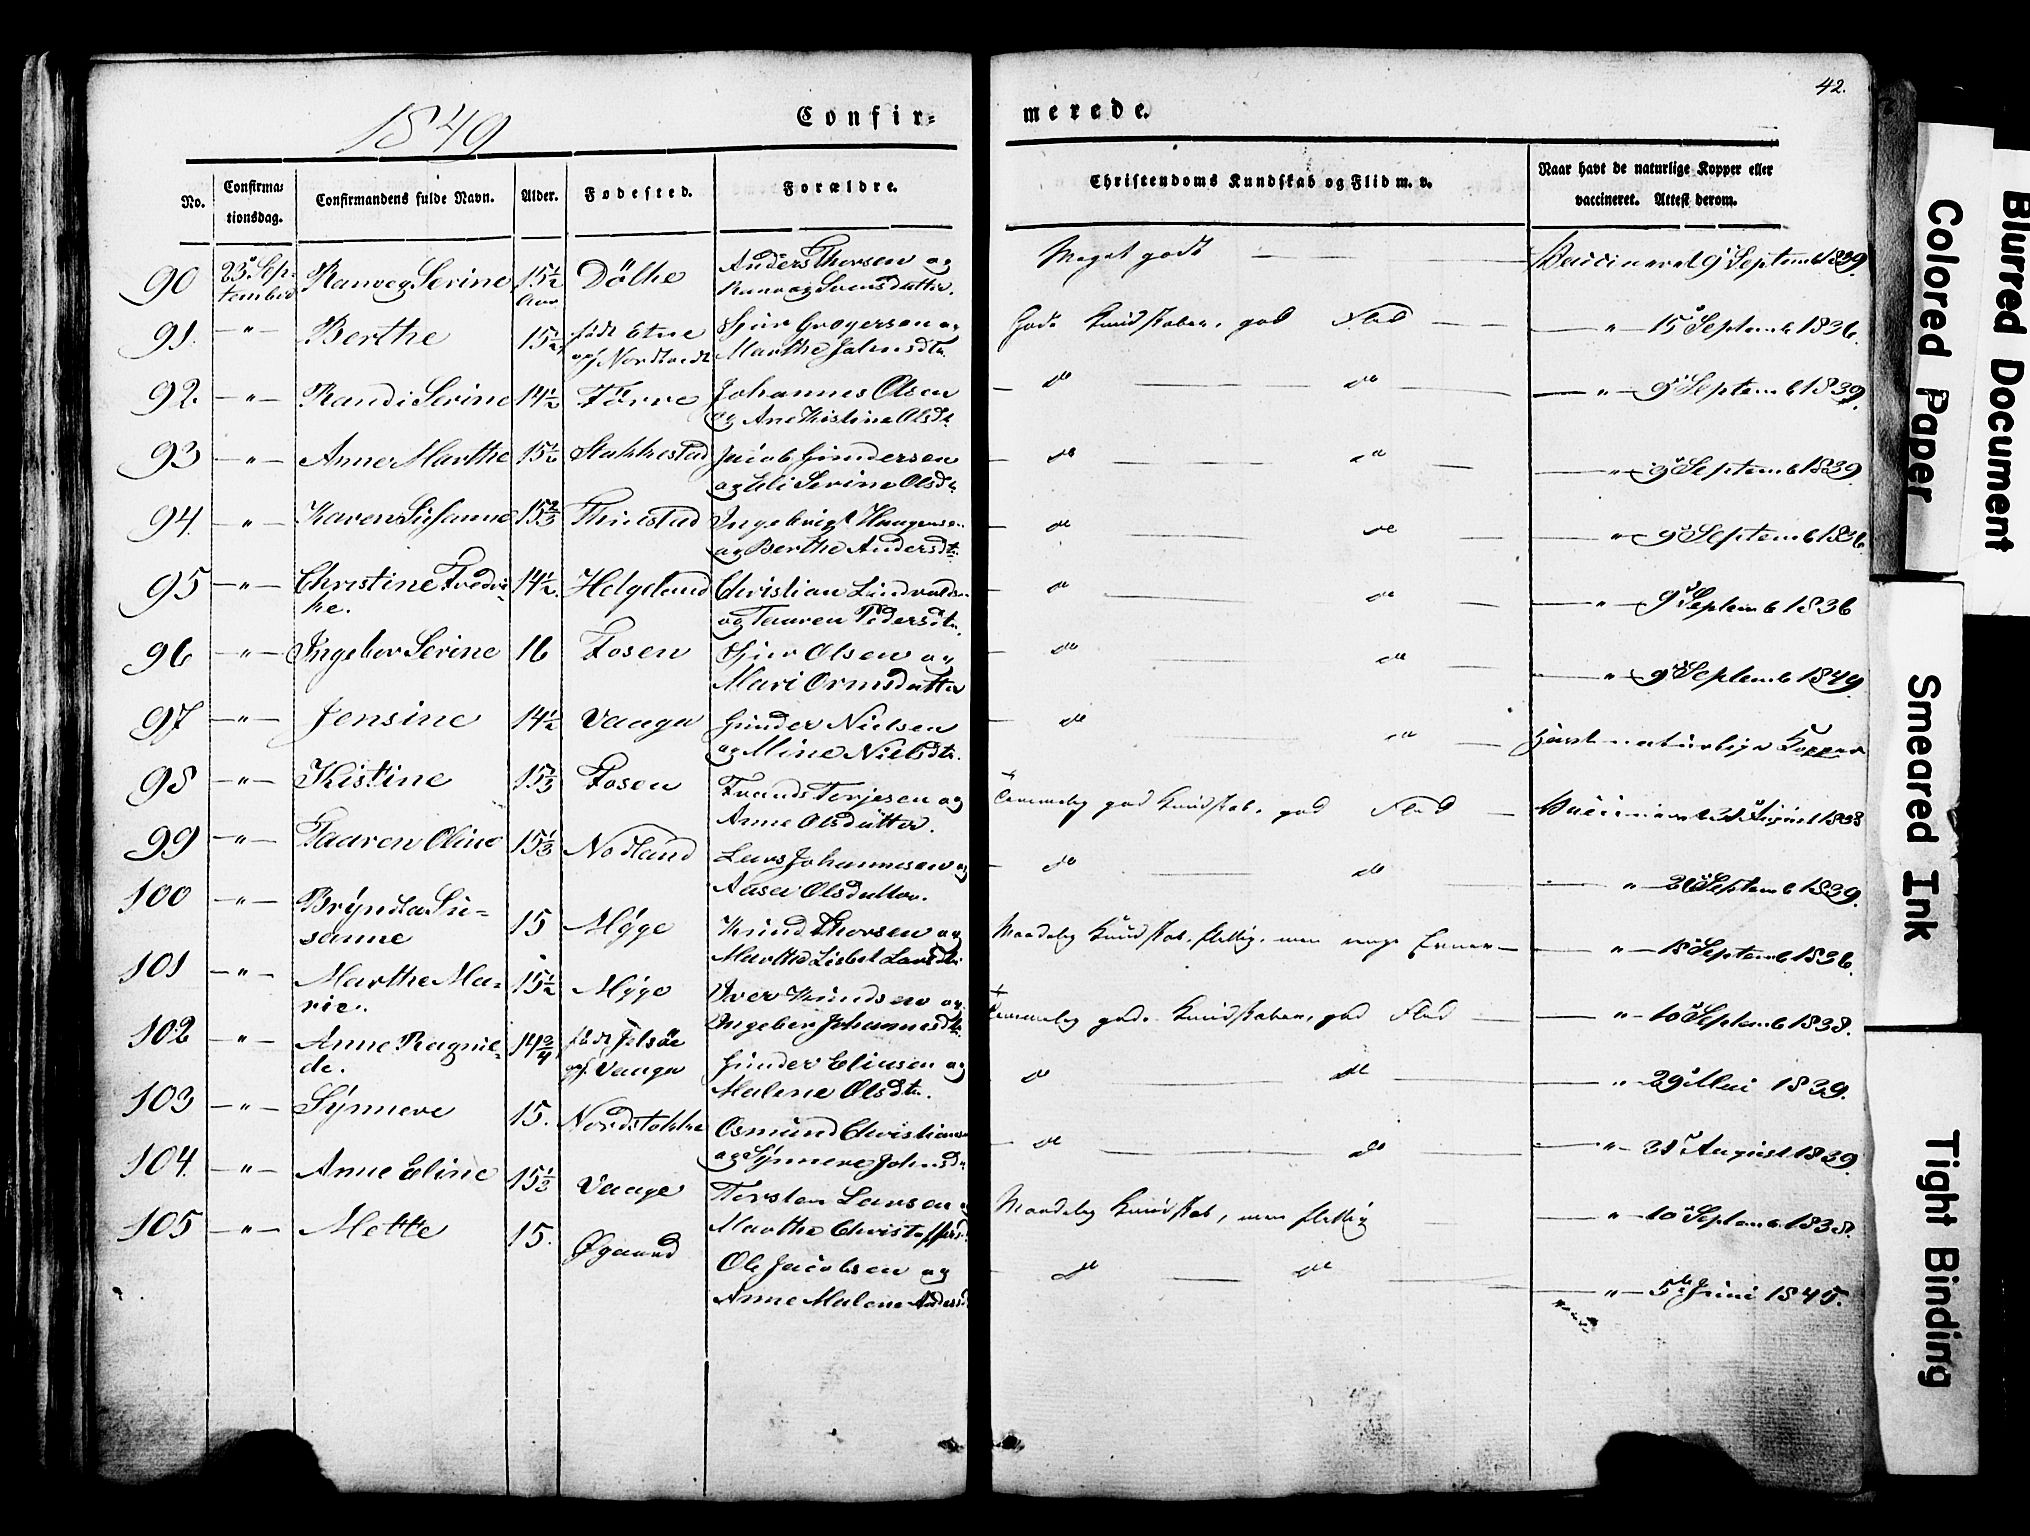 42.
1849
Confir=
merede.
No.
Confirma=
tionsdag.
Confirmandens fulde Navn.
Alder.
Fødested.
Forældre.
Christendoms Kundskab og Flid m. v.
Naar havt de naturlige Kopper eller
vaccineret. Attest derom.
90 Ranveg Serine 15½ Dölhe Anders Thorsen og
Aar Svensdatter.
Meget godt — — — Vaccineret 9 Septemb 1839.
91. — " — Berthe 15½ født Etne Gregersen og
Marthe Johnsdtr.
Gode Kundskaber, god Flid — — — " — 15 Septemb 1836.
92. — " — Randi Serine 14½ Förre Johannes Olsen
og Ane Kistine Olsdt.
— do — — do — — " — 9 Septemb 1839.
93 — " — Anne Marthe 15½ Stakkestad Jacob Gundersen
og Eli Serine Olsdt.
— do — — do — — " — 9 Septemb 1839.
94. — " — Karen Susanne 15⅔ Ingebrigt
og Berthe Andersdtr.
— do — — do — — " — 9 Septemb 1836.
95 — " — Christine Fredri=
ke. 14½ Helgeland Christian
og Taaren Pedersdtr.
— do — — do — — " — 9 Septemb 1836
96 — " — Ingebor Serine 16 Fosen Olsen og
Mari Ormsdatter
— do — — do — — " — 9 Septemb 1849.
97 — " — Jensine 14½ Vaaga Gunder Nielsen
og Mine Nielsdtr.
— do — — do — havt naturlige Kopper
98 — " — Kistine 15⅓ Fosen Trands Terjesen og
Anne Olsdatter.
Temmelig god Kundskab, god Flid — Vaccineret 31 August 1838
99 — " — Taaren Oline 15⅓ Nodland Lars Johannesen og
Aasa Olsdatter.
— do — do — " — Septemb 1839.
100 — " — Brynda Su=
sanne 15 Myge Knud Thorsen og
Marthe Lisbet Larsdtr
Maadelig Kundskab, flittig, men svage Evner — — " — 18 Septemb 1836.
101 — " — Marthe Ma=
rie. 15½ Myge Iver Knudsen og
Ingebor Johannesdtr.
Temmelig gode Kundskaber, god Flid — — " — 10 Septemb 1838.
102 — " — Anne Ragnil=
de. 14¾ født Jelsöe
Vaaga Gunder Eliasen og
Malene Olsdtr.
— do — do — — " — 29 Mai 1839.
103 — " — Synneve 15. Nordstokke Osmund Christiansen
og Synneve Johnsdtr
— do — do — — " — 31 August 1839.
104. — " — Anne Eline 15⅓ Vaage Torsten Larsen og
Marthe Christoffersd
Maadelig Kundskab, men flittig — — " — 10 Septemb 1838.
105 — " — Mette 15. Øgaard Ole Jacobsen og
Anne Malene Andersd
— do — do — — " — 5te Juni 1845.
Blurred Document
Colored Paper
Smeared Ink
Tight Binding